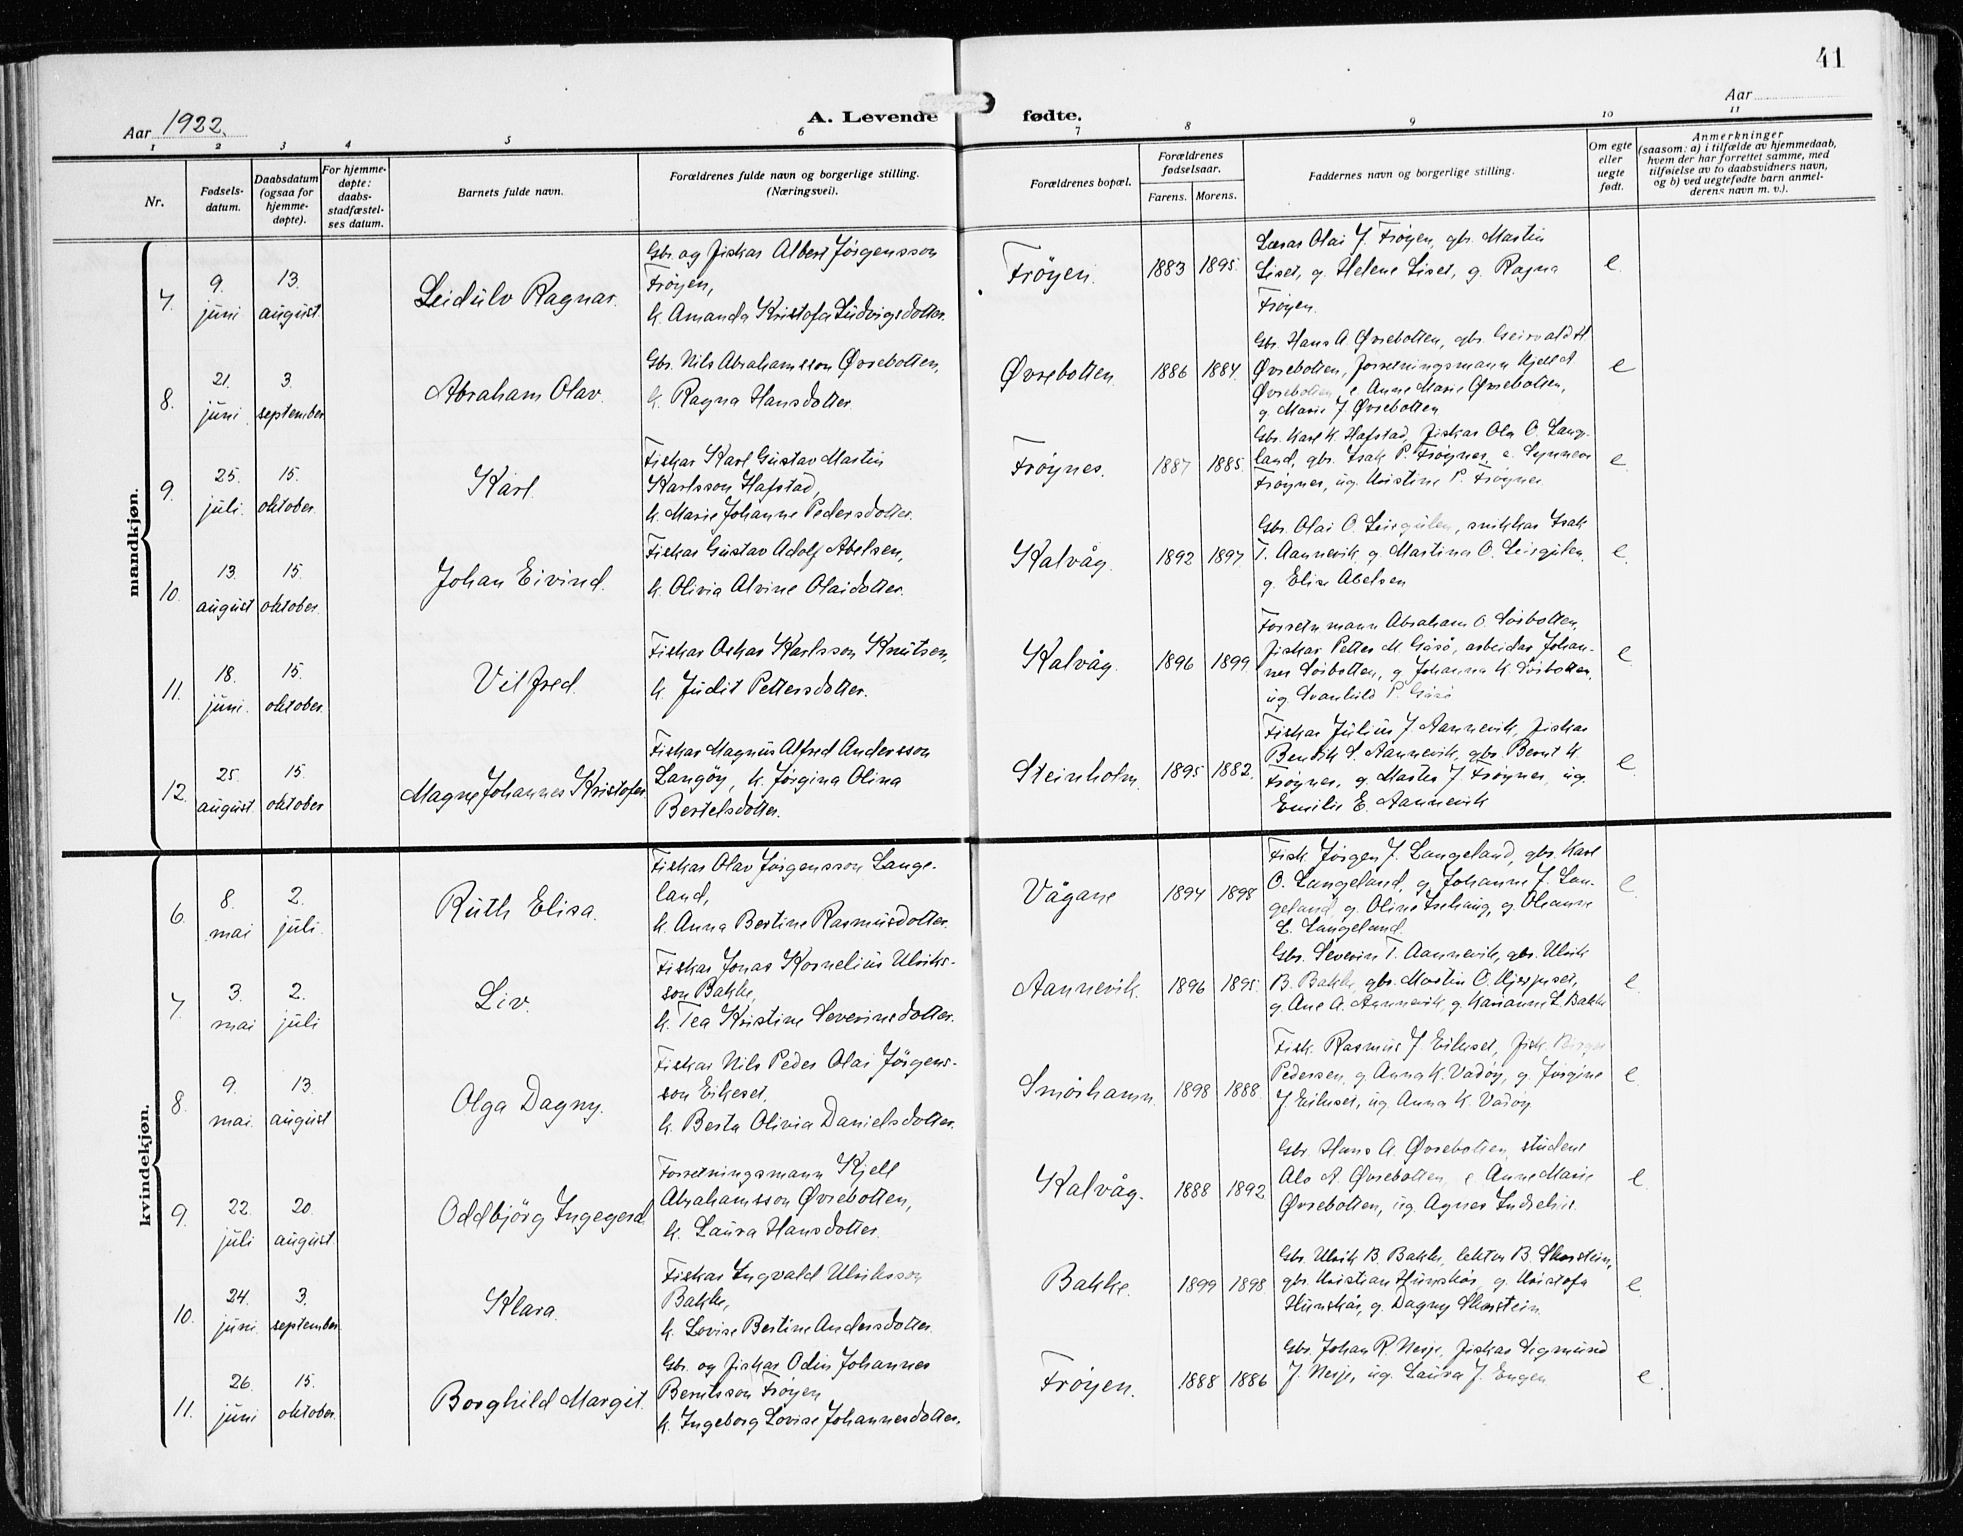 41
Aar 1922.
A. Levende fødte.
Aar
1 2 3 4 5 6 7 8 9 10 11
Nr.
Fødsels-
datum.
Daabsdatum
(ogsaa for
hjemme-
døpte).
For hjemme-
døpte:
daabs-
stadfæstel-
ses datum.
Barnets fulde navn.
Forældrenes fulde navn og borgerlige stilling.
(Næringsvei).
Forældrenes bopæl.
Forældrenes
fødselsaar.
Farens. Morens.
Faddernes navn og borgerlige stilling.
Om egte
eller
uegte
født.
Anmerkninger
(saasom: a) i tilfælde av hjemmedaab,
hvem der har forrettet samme, med
tilføielse av to daabsvidners navn,
og b) ved uegtefødte barn anmel-
derens navn m. v.).
mandkjøn.
7. 9. juni 13. august. Leidulv Ragnar.
Gbr. og fiskar Albert Jørgensson
Frøyen,
k. Amanda Kristofa Ludvigsdotter.
Frøyen. 1883 1895.
Lærar Olai J. Frøyen, gbr. Martin
Liset, g. Helene Liset, g. Ragna
Frøyen.
e.
8. 21. juni 3. september Abraham Olav.
Gbr. Nils Abrahamsson Øvrebotten,
k. Ragna Hansdotter.
Øvrebotten. 1886 1884.
Gbr. Hans A. Øvrebotten, gbr.
Øvrebotten, forretningsmann Kjell A
Øvrebotten, e. Anne Marie Øvrebotten,
g. Marie J. Øvrebotten
e
9. 25. juli. 15. oktober. Karl.
Fiskar Karl Gustav Martin
Karlsson Hafstad,
k. Marie Johanne Pedersdotter.
Frøynes. 1887 1885.
Gbr. Karl K. Hafstad, fiskar Ola O. Lang-
land, gbr. Isak P. Frøynes, e. Synneva
Frøynes, ug. Kristine P. Frøynes
e.
10. 13. august 15. oktober. Johan Eivind.
Fiskar Gustav Adolf Abelsen,
k. Olivia Alvine Olaidotter.
Kalvåg. 1892 1897
Gbr. Olai O. Leirgulen, snikkar Isak
T. Aannevik, g. Martina O. Leirgulen,
g. Elise Abelsen
e.
11. 18. juni. 15. oktober. Vilfred.
Fiskar Oskar Karlsson Knutsen,
k. Judit Pettersdotter.
Kalvåg. 1896 1899
Forretn mann Abraham O Sørbotten,
fiskar Petter M. Gåsø, arbeidar Johan-
nes Sørbotten, g Johanna K. Sørbotten,
ug. Svanhild P. Gåsø
e.
12. 25. august. 15. oktober Magne Johannes Kristofer
Fiskar Magnus Alfred Andersson
Langøy, k. Jørgina Olina
Bertelsdotter.
Steinholm. 1895 1882.
Fiskar Julius J. Aannevik, fiskar
Bendik S. Aannevik, gbr Bernt K.
Frøynes, g. Marta J. Frøynes, ug.
Emilie E. Aannevik
e.
kvindekjøn.
6. 8. mai 2. juli. Ruth Elisa.
Fiskar Olav Jørgensson Lange-
land,
k. Anna Bertine Rasmusdotter.
Vågane 1894 1898
Fisk. Jørgen J. Langeland, gbr. Karl
O. Langeland, g. Johanne J. Lan-
geland, g. Oline g. Oleanne
L. Langeland.
e.
7. 3. mai 2. juli Liv.
Fiskar Jonas Kornelius Ulriks-
son Bakke,
k. Tea Kristine Severinsdotter.
Aannevik. 1896 1895.
Gbr. Severin T. Aannevik, gbr. Ulrik
B. Bakke, gbr. Martin O.
g. Ane A. Aannevik, g. Karianne L. Bakke
e.
8. 9. mai. 13. august Olga Dagny.
Fiskar Nils Peder Olai Jørgens-
son Eikeset,
k. Berta Olivia Danielsdotter.
Smørhamn. 1898 1888.
Fisk. Rasmus J Eikeset, fisk.
Pedersen, g. Anna K. Vadøy, g. Jørgine
J. Eikeset, ug. Anna K. Vadøy
e.
9. 22. juli 20. august. Oddbjörg Ingegerd.
Forretningsmann Kjell
Abrahamsson Øvrebotten,
k. Laura Hansdotter.
Kalvåg. 1888 1892
Gbr. Hans A. Øvrebotten, student
A. Øvrebotten, e Anne Marie
Øvrebotten, ug. Agnes
e.
10. 24. juni. 3. september. Klara.
Fiskar Ingvald Ulriksson
Bakke,
k. Lovise Bertine Andersdotter.
Bakke. 1899 1898.
Gbr. Ulrik B. Bakke, lektor B. Skorstein,
gbr. Kristian Hunskår, g. Kristofa
Hunskår, g. Dagny Skorstein.
e.
11. 26. juni 15. oktober. Borghild Margit.
Gbr. og fiskar Odin Johannes
Berntsson Frøyen
k. Ingeborg Lovise Johannesdotter.
Frøyen. 1888 1886
Gbr. Johan R. Nesje, fiskar Sigmund
J. Nesje, ug. Laura J. Engen
e.